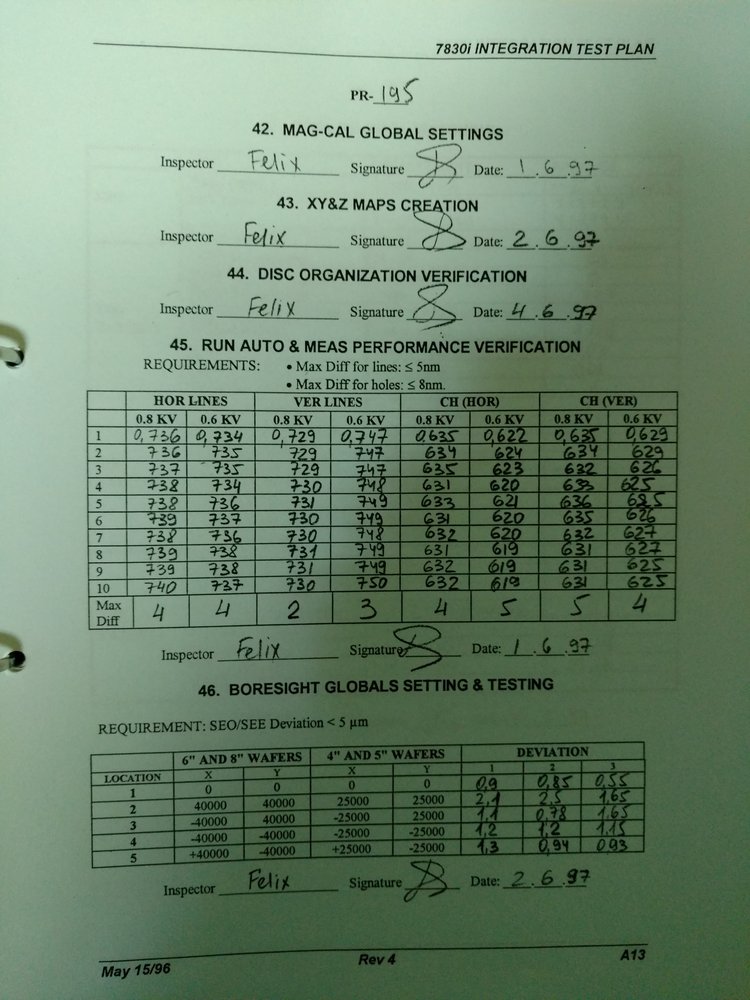 7830i INTEGRATION TEST PLAN
PR- 195
42. MAG-CAL GLOBAL SETTINGS
Inspector Felix Signature Date: 1.6.97
43. XY&Z MAPS CREATION
Inspector Felix Signature Date: 2.6.97
44. DISC ORGANIZATION VERIFICATION
Inspector Felix Signature Date: 4.6.97
45. RUN AUTO & MEAS PERFORMANCE VERIFICATION
REQUIREMENTS: • Max Diff for lines: ≤ 5nm
• Max Diff for holes: ≤ 8nm.
HOR LINES VER LINES CH (HOR) CH (VER)
0.8 KV 0.6 KV 0.8 KV 0.6 KV 0.8 KV 0.6 KV 0.8 KV 0.6 KV
1 0,736 0,734 0,729 0,747 0,635 0,622 0,635 0,629
2 736 735 729 747 634 624 634 629
3 737 735 729 747 635 623 632 626
4 738 734 730 748 631 620 633 625
5 738 736 731 749 633 621 636 625
6 739 737 730 749 631 620 635 626
7 738 736 730 748 632 620 632 627
8 739 738 731 749 631 619 631 627
9 739 738 731 749 632 619 631 625
10 740 737 730 750 632 619 631 625
Max Diff 4 4 2 3 4 5 5 4
Inspector Felix Signature Date: 1.6.97
46. BORESIGHT GLOBALS SETTING & TESTING
REQUIREMENT: SEO/SEE Deviation < 5 µm
6" AND 8" WAFERS 4" AND 5" WAFERS DEVIATION
LOCATION X Y X Y 1 2 3
1 0 0 0 0 0,9 0,85 0,55
2 40000 40000 25000 25000 2,1 2,5 1,65
3 -40000 40000 -25000 25000 1,1 0,78 1,65
4 -40000 -40000 -25000 -25000 1,2 1,2 1,15
5 +40000 -40000 +25000 -25000 1,3 0,94 0,93
Inspector Felix Signature Date: 2.6.97
May 15/96 Rev 4 A13